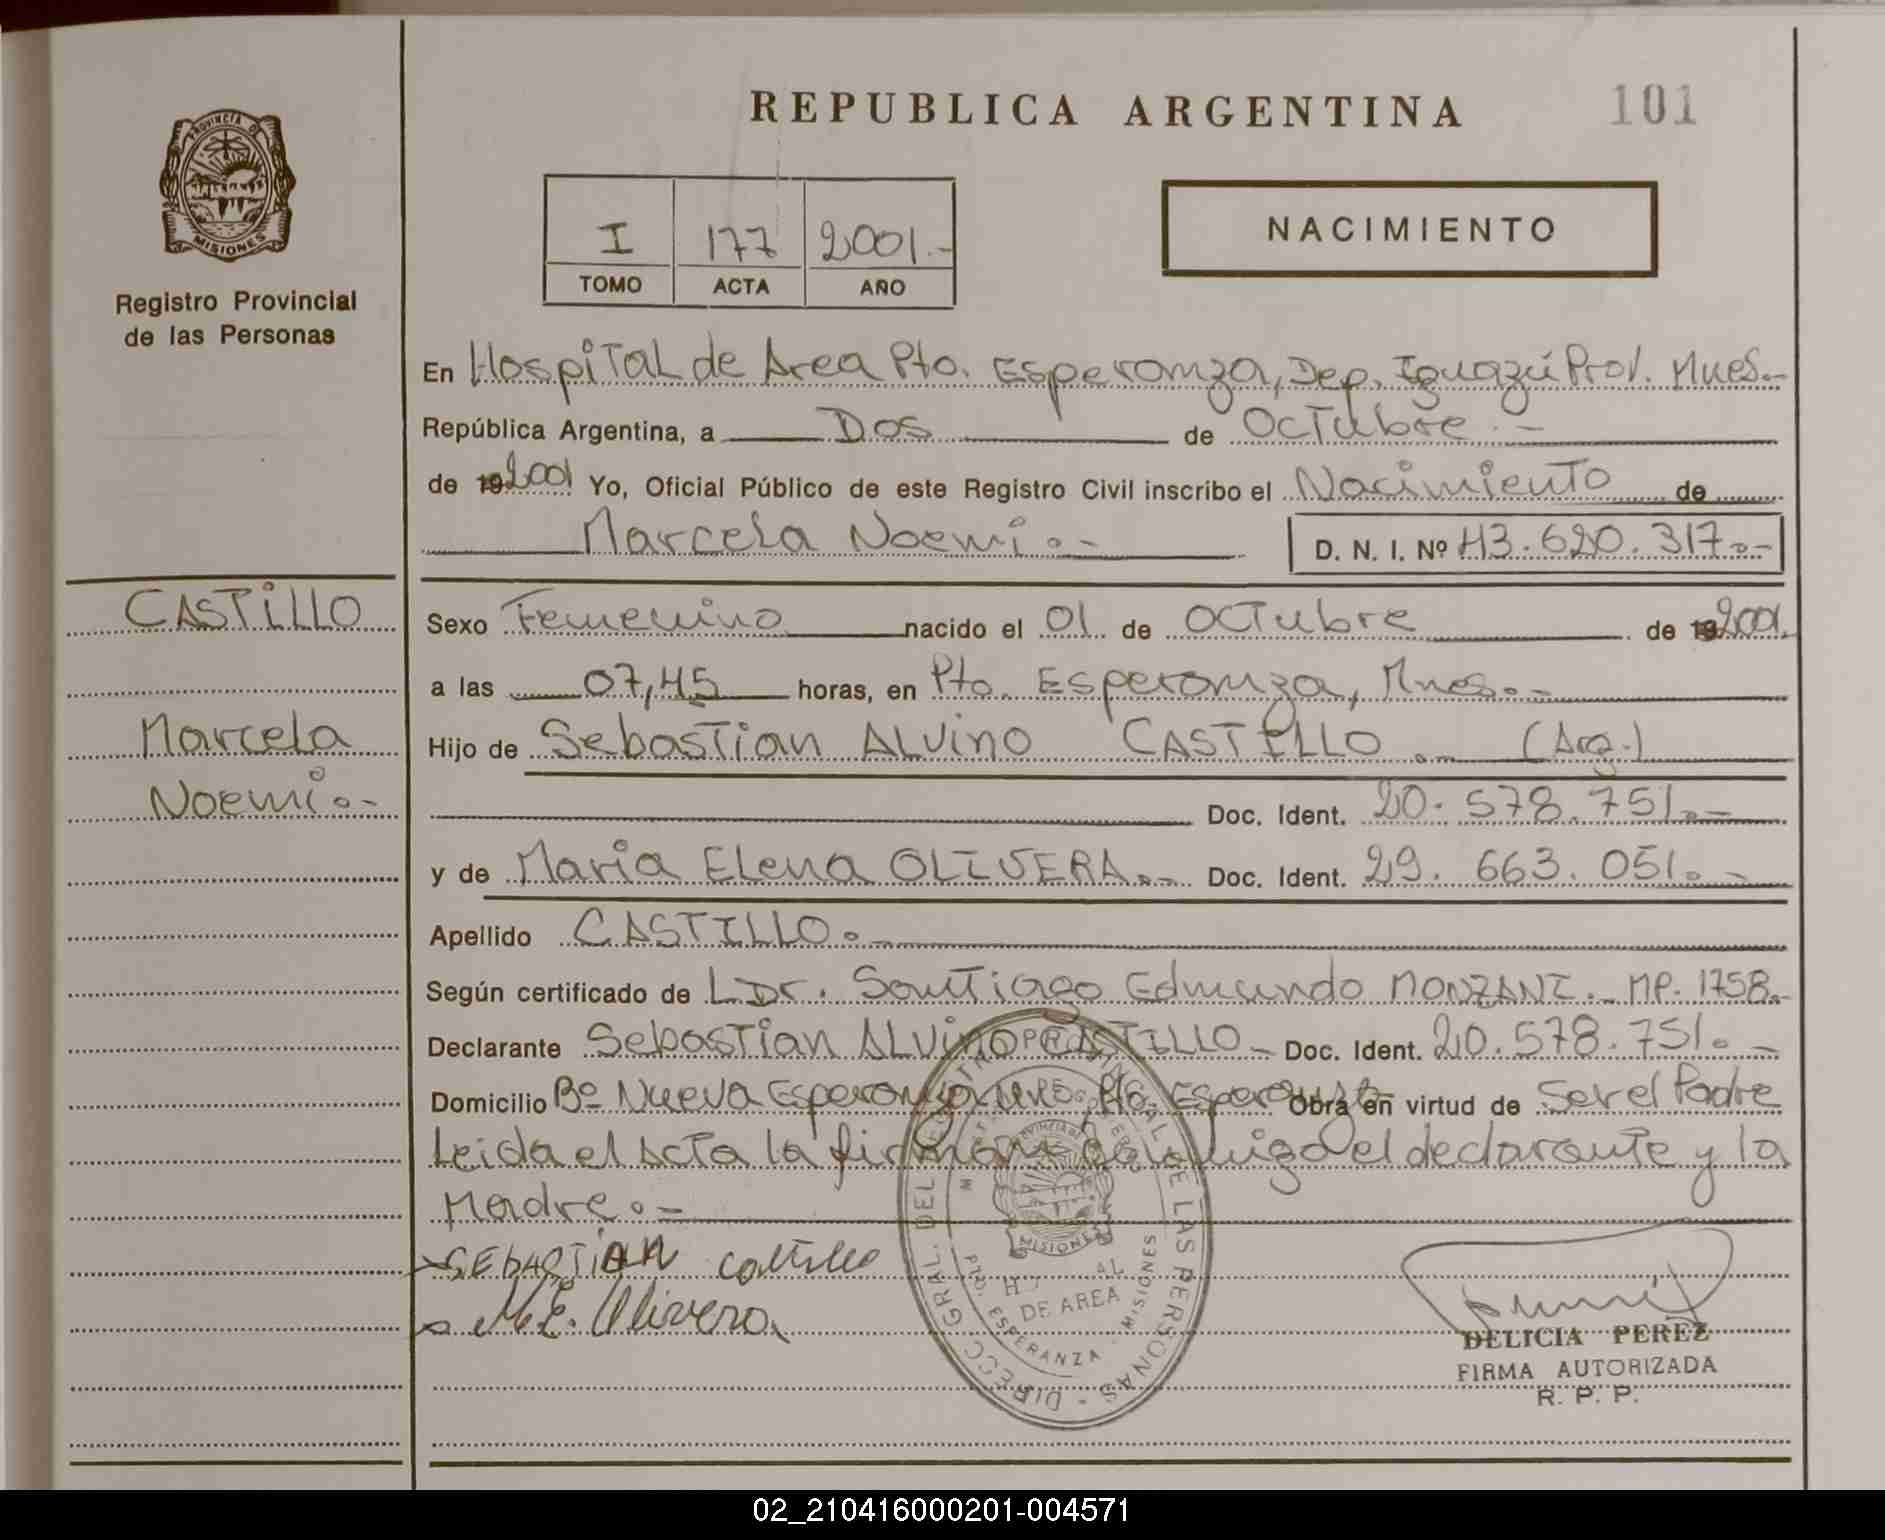 REPUBLICA ARGENTINA 101
PROVINCIA DE
MISIONES
Registro Provincial
de las Personas
I 177 2001.-
TOMO ACTA AÑO
NACIMIENTO
En Hospital de Area Pto. Esperanza, Dep. Iguazú Prov. Mnes.-
República Argentina, a Dos de Octubre.-
de 192001 Yo, Oficial Público de este Registro Civil inscribo el Nacimiento de
Marcela Noemi.-
D. N. I. Nº 43.620.317.-
CASTiLLO
Marcela
Noemi.-
Sexo Femenino nacido el 01 de Octubre de 192001.
a las 07,45 horas, en Pto. Esperanza, Mnes.-
Hijo de Sebastian ALvino CASTILLO.- (Arg.)
Doc. Ident. 20.578.751.-
y de Maria Elena OLIVERA.- Doc. Ident. 29.663.051.-
Apellido CASTILLO.-
Según certificado de Dr. Santiago Edmundo MONZANI.- MP. 1758.-
Declarante Sebastian ALvino CASTILLO- Doc. Ident. 20.578.751.-
Domicilio Bº Nueva Esperanza Pto. Esperanza Obra en virtud de Ser el Padre
Leida el Acta la el declarante y la
Madre.-
SEBASTiAN Castillo
M.E. Olivera
DIRECC. GRAL. DEL DE LAS PERSONAS
PROVINCIA DE
MISIONES
DE AREA
PTO. ESPERANZA - MISIONES
DELICIA PEREZ
FIRMA AUTORIZADA
R. P. P.
02_210416000201-004571